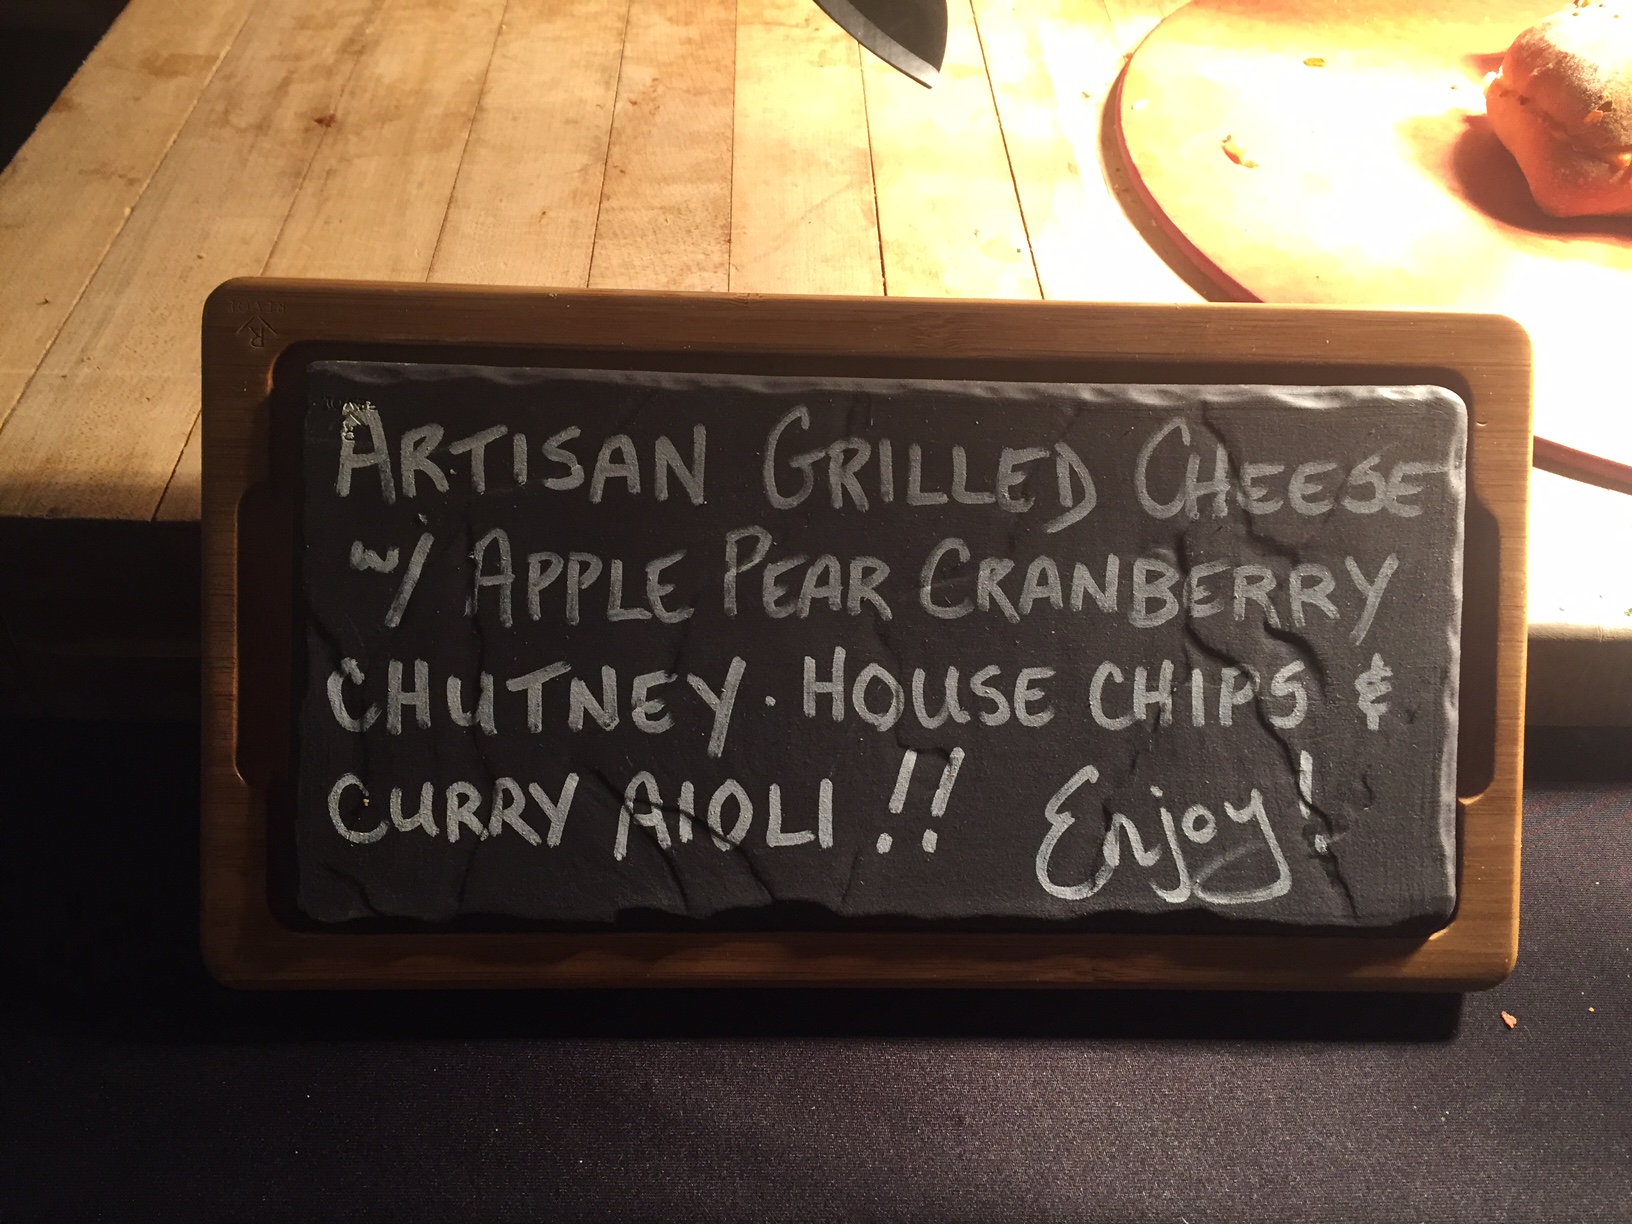 ARTISAN GRILLED CHEESE
w/ APPLE PEAR CRANBERRY
CHUTNEY · HOUSE CHIPS &
CURRY AIOLI !! Enjoy!